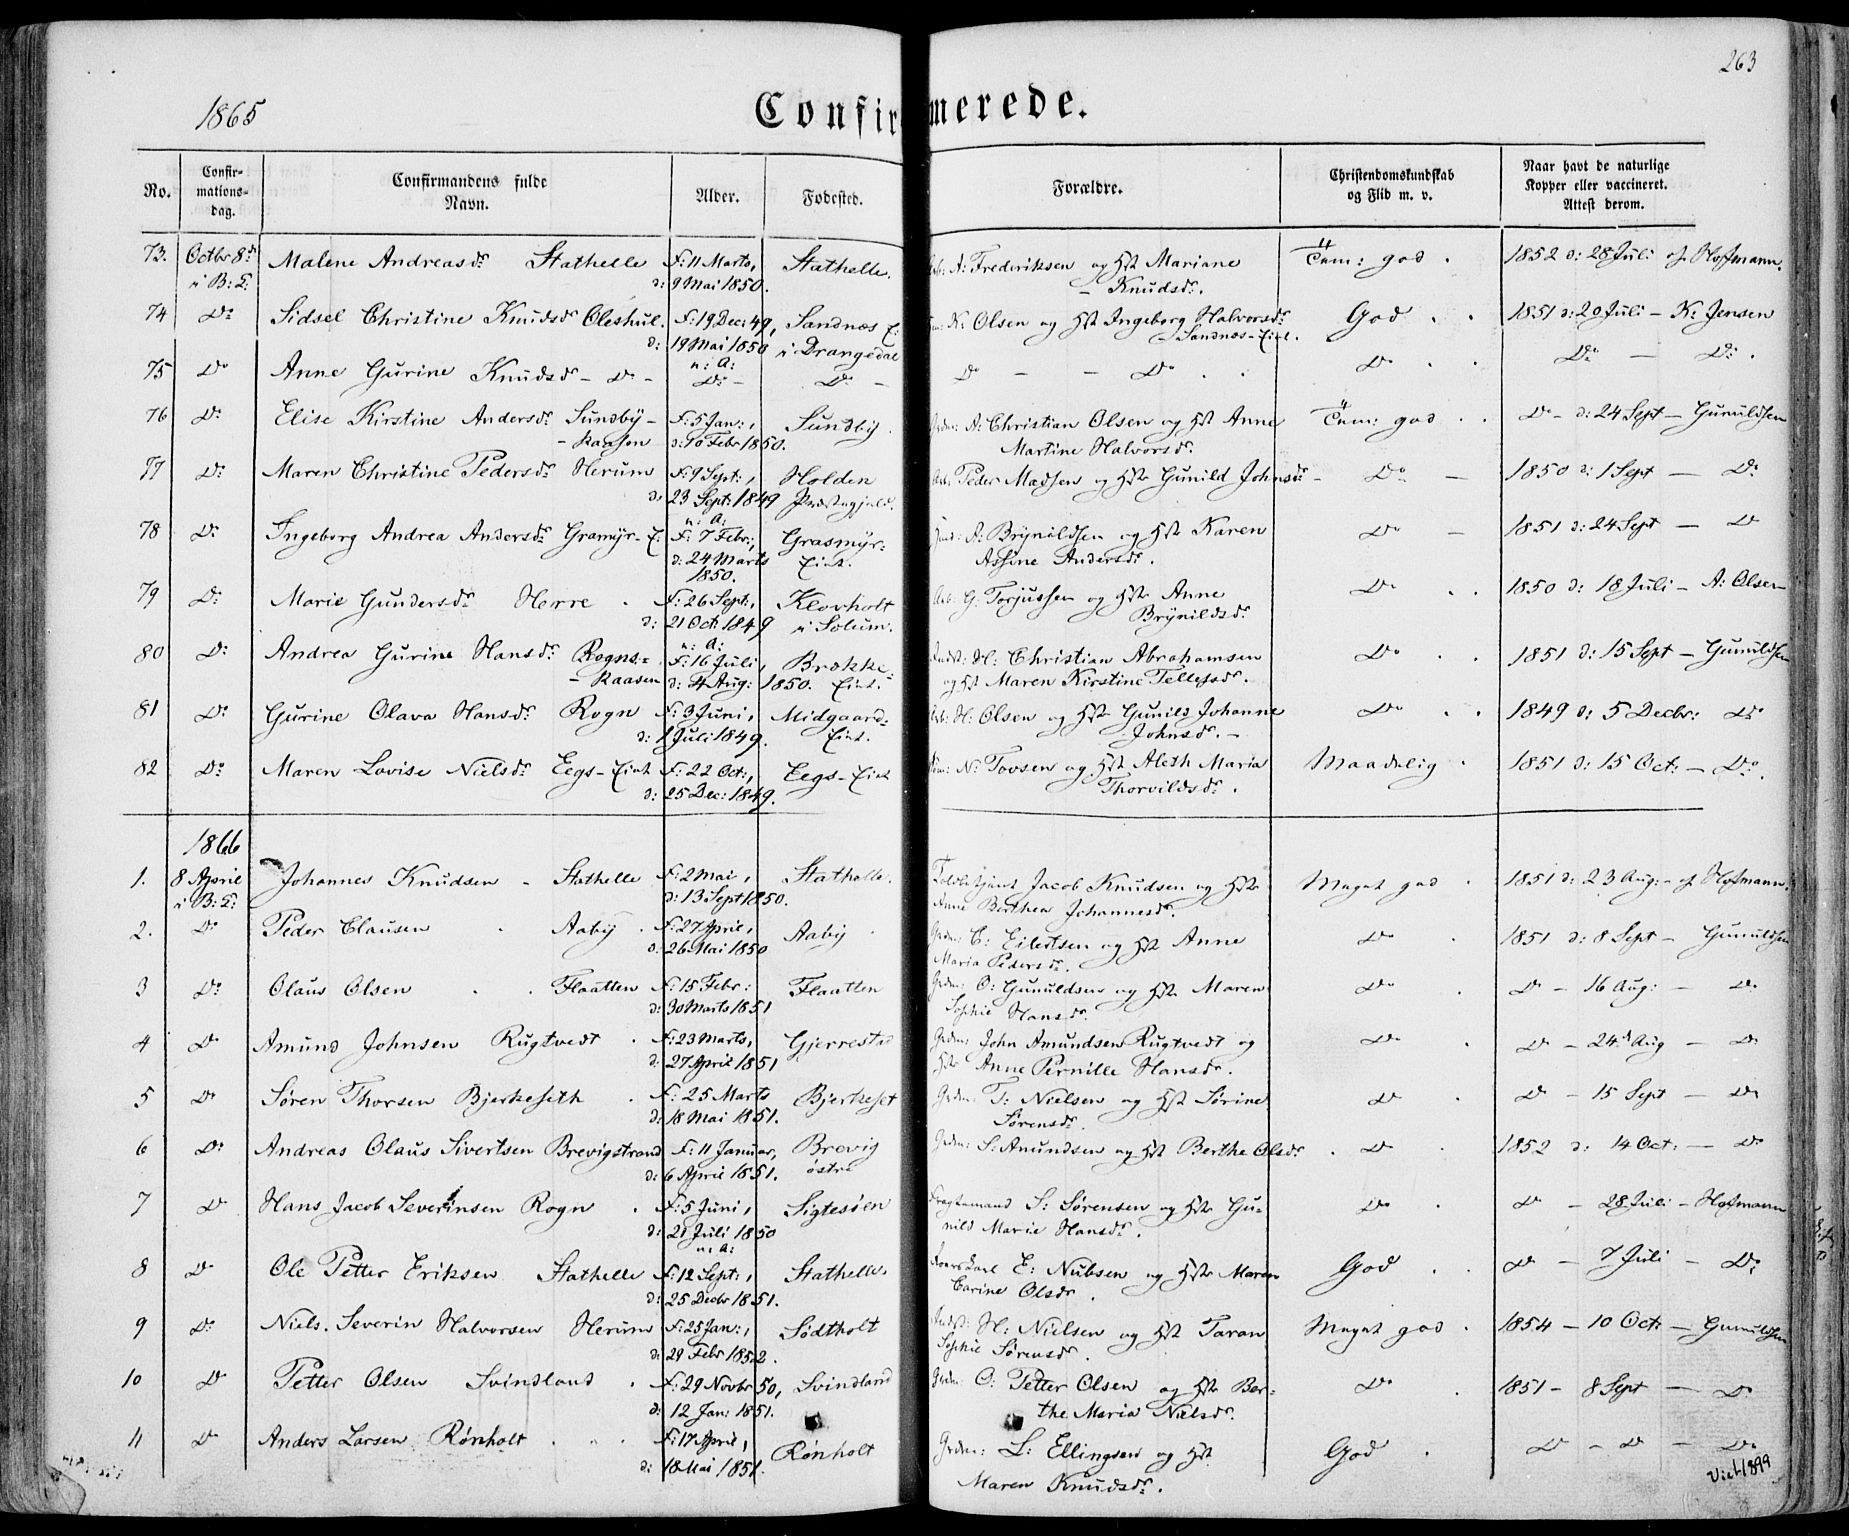 263
1865
Confirmerede.
No. Confir-mations-dag. Confirmandens fulde Navn. Alder. Fødested. Forældre. Christendomskundskab og Flid m. v. Naar havt de naturlige Kopper eller vaccineret. Attest derom.
73. Octbr 8de Malene Andreasdr Stathelle F: 11 Marts, Stathelle. A: Frederiksen og Hst Mariane Tem: god . 1852 d: 28 Juli af Hofmann.
i B: K: d: 9 Mai 1850. – Knudsdr.
74 Do Sidsel Christine Knudsdr Oleshul. F: 19 Dec: 49, Sandnæs E: K: Olsen og Hst Ingeborg Halvorsdr God . . 1851 d: 20 Juli – K: Jensen
d: 19 Mai 1850 i Drangedal Sandnæs-Eiet.
n: A:
75 Do Anne Gurine Knudsdr – Do – Do – Do – Do – – Do . . Do . . Do – Do .
76 Do Elise Kirstine Andersdr Sundby- F: 5 Jan:, Sundby . Grdm: A: Christian Olsen og Hst Anne Tem: god . . Do – d: 24 Sept – Gunuldsen
– Raasen d: 10 Febr 1850. Martine Halvorsdr.
77 Do Maren Christine Pedersdr Herum F: 9 Sept:, Holden Peder Madsen og Hst Gunild Johnsdr – Do – 1850 d: 1 Sept – Do
d: 23 Sept: 1849 Præstegjeld.
n: A:
78 Do Ingeborg Andrea Andersdr Gramyr-E. F: 7 Febr:, Grasmyr- A: Brynildsen og Hst Karen Do – 1851 d: 24 Sept – Do
d: 24 Marts Eiet. Assine Andersdr.
1850.
79 Do Marie Gundersdr Herre . F: 26 Sept:, Klovholt Arb: G: Torjussen og Hst Anne Do . . 1850 d: 18 Juli – A: Olsen
d: 21 Oct: 1849 i Solum. Brynildsdr.
n: A:
80 Do Andrea Gurine Hansdr Rogns- F: 16 Juli, Brække- Indst: H: Christian Abrahamsen Do . . 1851 d: 15 Sept – Gunuldsen
– Raasen d: 4 Aug: 1850. Eiet. og Hst Maren Kirstine Tellefsdr.
81 Do Gurine Olava Hansdr Rogn F: 3 Juni, Midgaard- Arb: H: Olsen og Hst Gunild Johanne Do . . 1849 d: 5 Decbr: Do
d: 1 Juli 1849. Eiet. Johnsdr. –
82 Do Maren Lovise Nielsdr Eegs-Eiet F: 22 Oct:, Eegs-Eiet N: Tovsen og Hst Aleth Maria Maadelig . 1851 d: 15 Oct: – Do.
d: 25 Dec: 1849. Thorvildsdr.
1866
1. 8 April Johannes Knudsen – Stathelle F: 2 Mai, Stathelle. Jacob Knudsen og Hst Meget god . 1851 d: 23 Aug: – af Hofmann.
i B: K: d: 13 Sept 1850. Anne Berthea Johannesdr.
2. Do Peder Clausen . Aaby . F: 27 April, Aaby . Grdm: C: Eilertsen og Hst Anne Do . 1851 d: 8 Sept – Gunuldsen
d: 26 Mai 1850 Maria Pedersdr.
3 Do Olaus Olsen . . Flaatten F: 15 Febr: Flaatten Grdm: O: Gunuldsen og Hst Maren Do . Do – 16 Aug: – Do
d: 30 Marts 1851 Sophie Hansdr.
4 Do Amund Johnsen Rugtvedt . F: 23 Marts, Gjerrestad Grdm: John Amundsen Rugtvedt og Do . Do – 24de Aug – Do
d: 27 April 1851 Hst Anne Pernille Hansdr.
5 Do Søren Thorsen Bjerkeseth . F: 25 Marts Bjerkeset Grdm: T: Nielsen og Hst Sørine Do . Do – 15 Sept – Do
d: 18 Mai 1851. Sørensdr.
6 Do Andreas Olaus Sivertsen Brevigstrand F: 11 Januar, Brevig Grdm: S: Amundsen og Hst Berthe Olsdr . Do . 1852 d: 14 Oct: – Do
d: 6 April 1851. østre
7 Do Hans Jacob Severinsen Rogn . F: 5 Juni, Sigtesøen Fragtemand S: Sørensen og Hst Gu- Do . Do – 28 Juli – Hofmann
d: 21 Juli 1850 nild Marie Hansdr.
n: A:
8 Do Ole Petter Eriksen Stathelle F: 12 Sept:, Stathelle. E: Nubsen og Hst Maren God . . Do – 7 Juli – Do
d: 25 Decbr 1851. Carine Olsdr.
9 Do Niels Severin Halvorsen Herum F: 25 Jan:, Sødtholt Indst: H: Nielsen og Hst Taran Meget god . 1854 – 10 Oct: – Gunuldsen
d: 29 Febr 1852. Sophie Sørensdr.
10 Do Petter Olsen Svindland . F: 29 Novbr 50, Svindland Grdm: O: Petter Olsen og Hst Ber- Do . 1851 – 8 Sept – Do
d: 12 Jan: 1851. the Maria Nielsdr.
11 Do Anders Larsen Rønholt . . . F: 17 April, Rønholt Grdm: L: Ellingsen og Hst God . Do – Do – Do
d: 18 Mai 1851. Maren Knudsdr.
1899